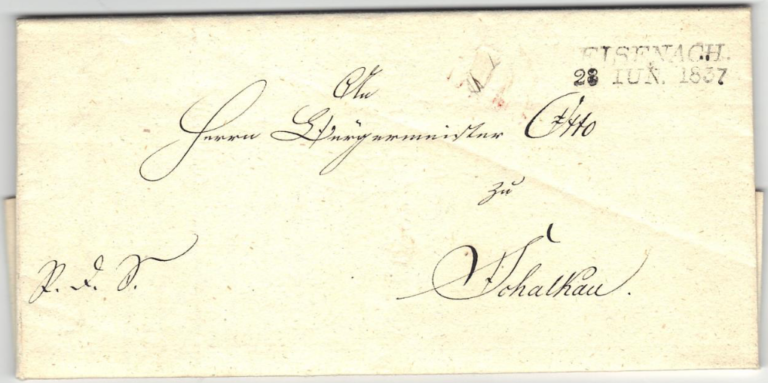 EISENACH.
28 IUN. 1837
An
Herrn Bürgermeister Otto
zu
Schalkau.
P. d. S.